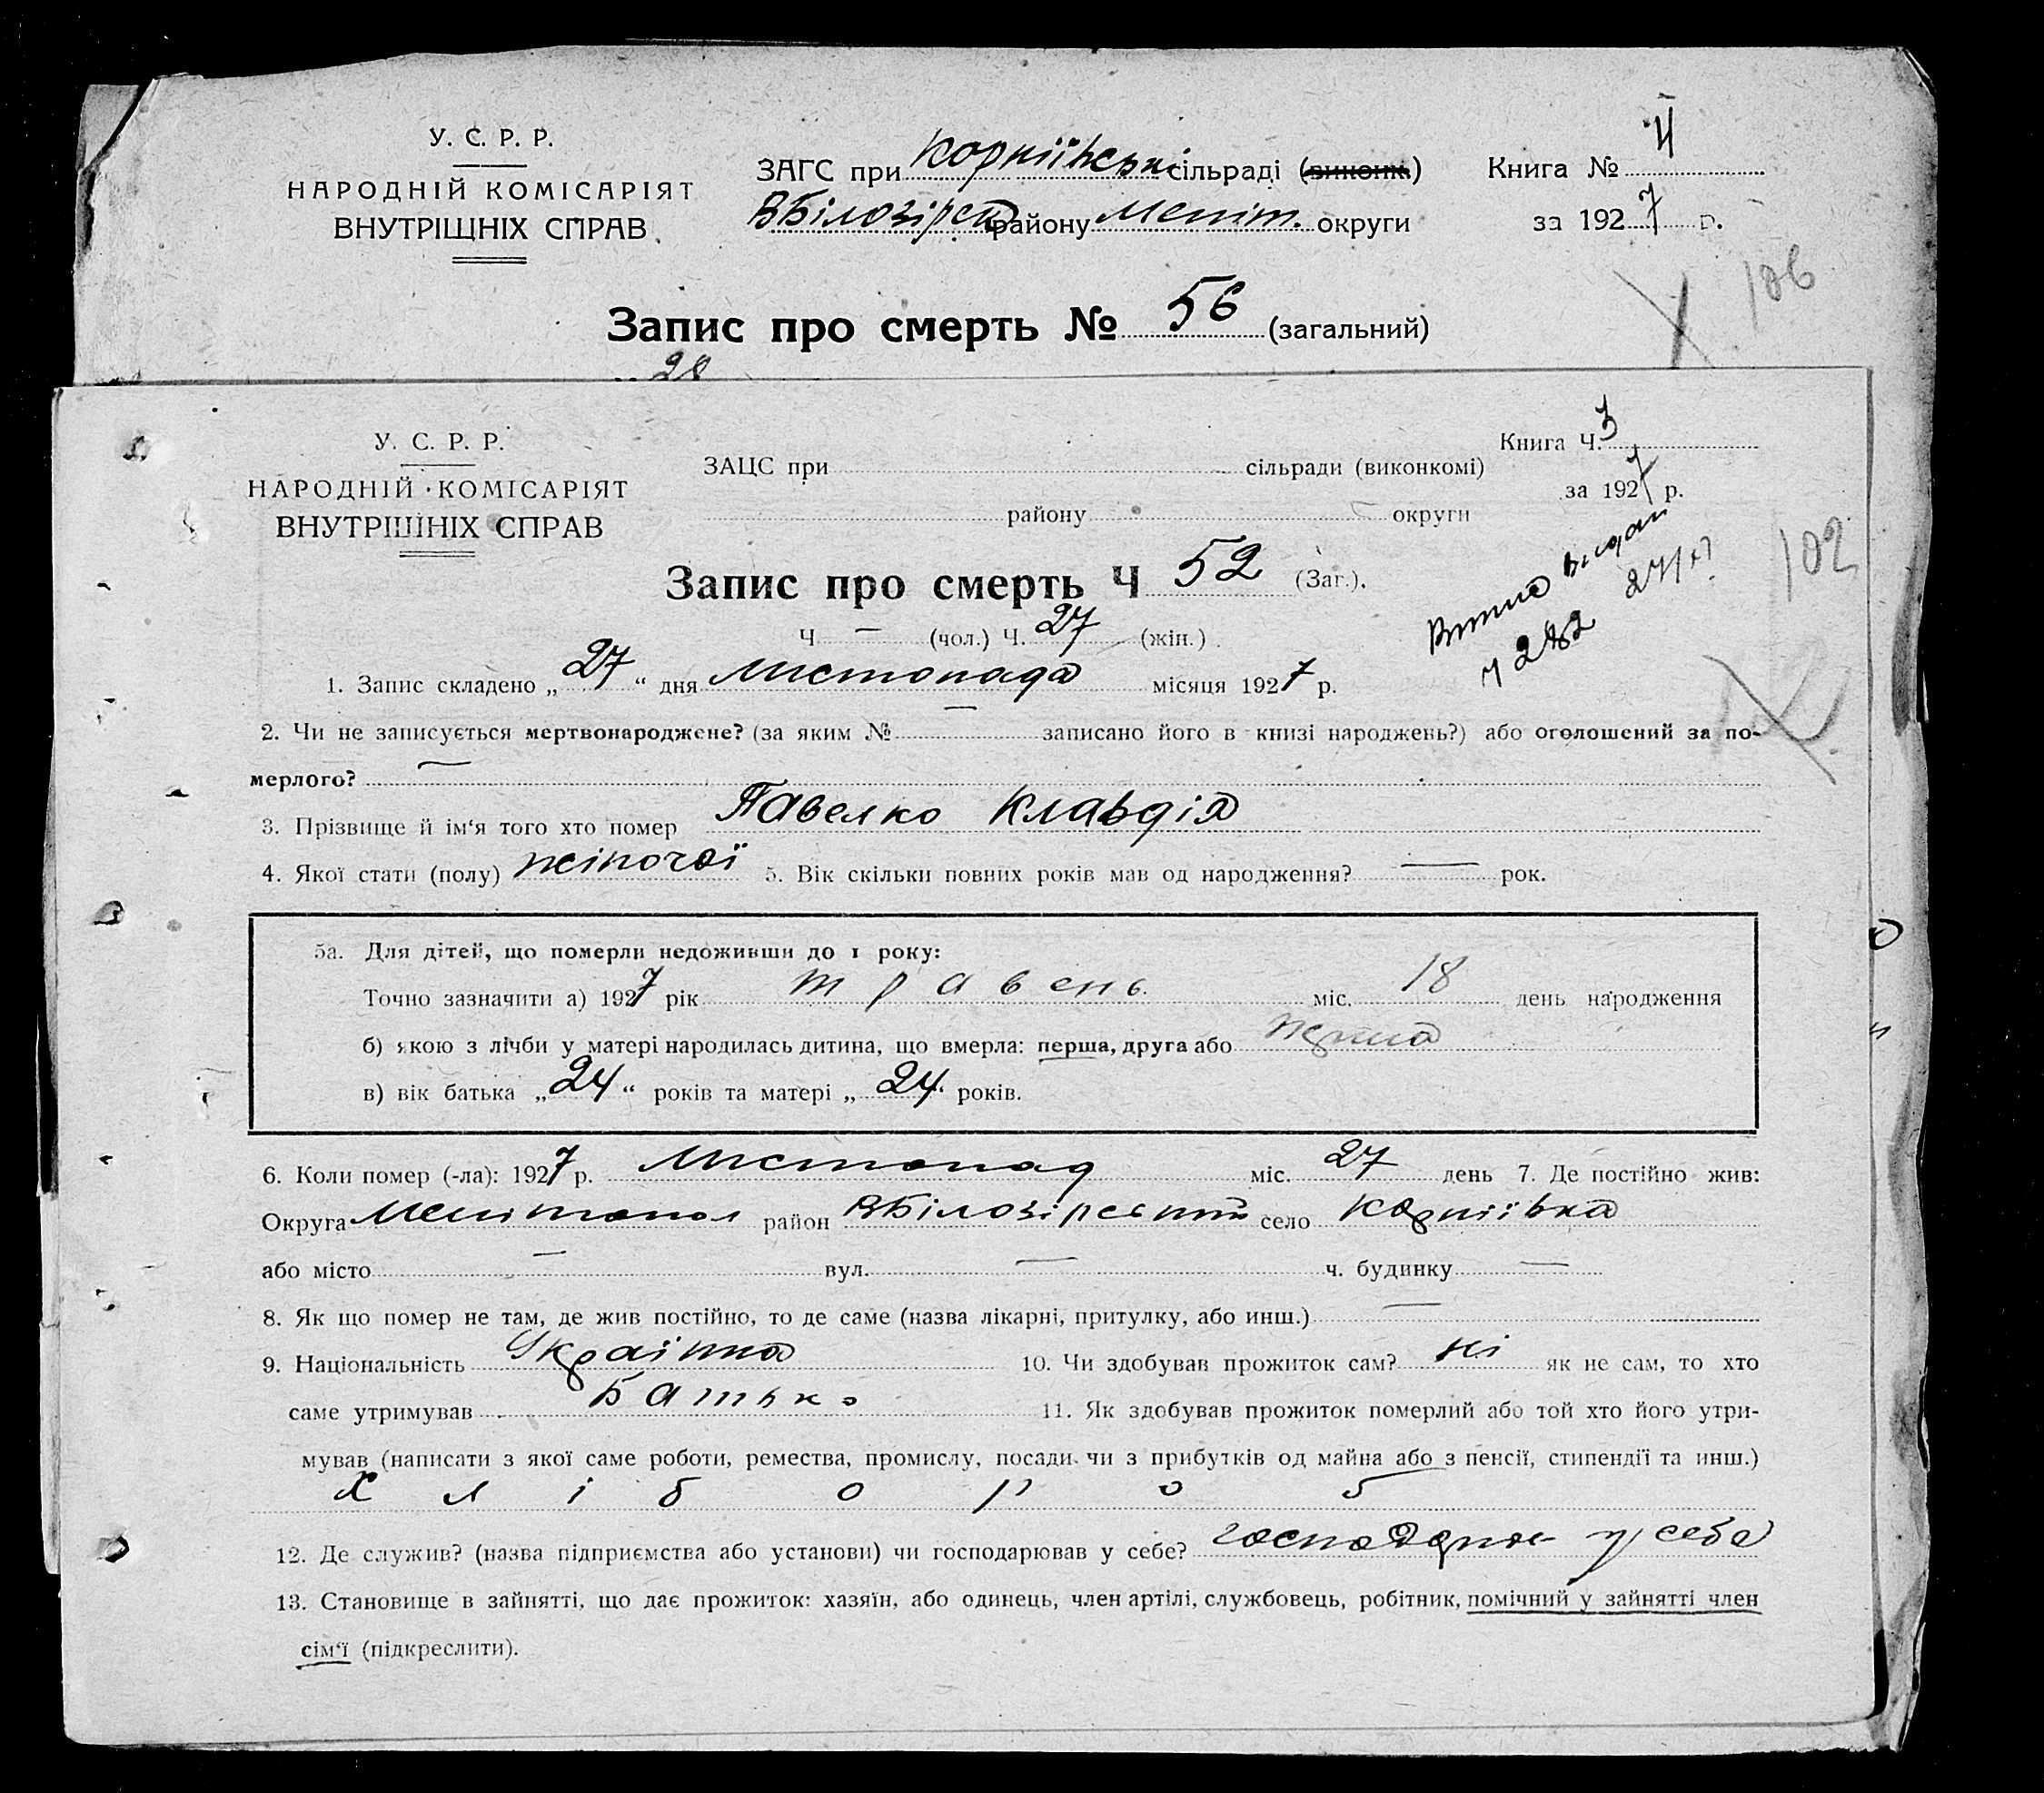 У. С. Р. Р.
НАРОДНІЙ КОМІСАРІЯТ
ВНУТРІШНІХ СПРАВ
ЗАГС при Корніївські сільраді (виконк.)
ВБілозірськ району Меліт. округи
Книга № 4
за 1927 р.
106
Запис про смерть № 56 (загальний)
28
У. С. Р. Р.
НАРОДНІЙ КОМІСАРІЯТ
ВНУТРІШНІХ СПРАВ
ЗАЦС при сільради (виконкомі)
району округи
Книга Ч. 3
за 1927 р.
102
Запис про смерть Ч 52 (Заг.).
Ч — (чол.) Ч. 27 (жін.)
1. Запис складено „27“ дня Листопада місяця 1927 р.
2. Чи не записується мертвонароджене? (за яким № — записано його в книзі народжень?) або оголошений за по-
мерлого? —
3. Прізвище й ім'я того хто помер Павелко Клавдія
4. Якої стати (полу) жіночої 5. Вік скільки повних років мав од народження? — рок.
5а. Для дітей, що померли недоживши до 1 року:
Точно зазначити а) 1927 рік травень міс. 18 день народження
б) якою з лічби у матері народилась дитина, що вмерла: перша, друга або
в) вік батька „24“ років та матері „24“ років.
6. Коли помер (-ла): 1927 р. Листопад міс. 27 день 7. Де постійно жив:
Округа Мелітопол район ВБілозірський село Корніївка
або місто — вул. — ч. будинку —
8. Як що помер не там, де жив постійно, то де саме (назва лікарні, притулку, або инш.) —
9. Національність Українка 10. Чи здобував прожиток сам? ні як не сам, то хто
саме утримував Батько 11. Як здобував прожиток померлий або той хто його утри-
мував (написати з якої саме роботи, ремества, промислу, посади чи з прибутків од майна або з пенсії, стипендії та инш.)
Хлібороб
12. Де служив? (назва підприємства або установи) чи господарював у себе? у себе
13. Становище в зайнятті, що дає прожиток: хазяїн, або одинець, член артілі, службовець, робітник, помічний у зайнятті член
сім'ї (підкреслити).